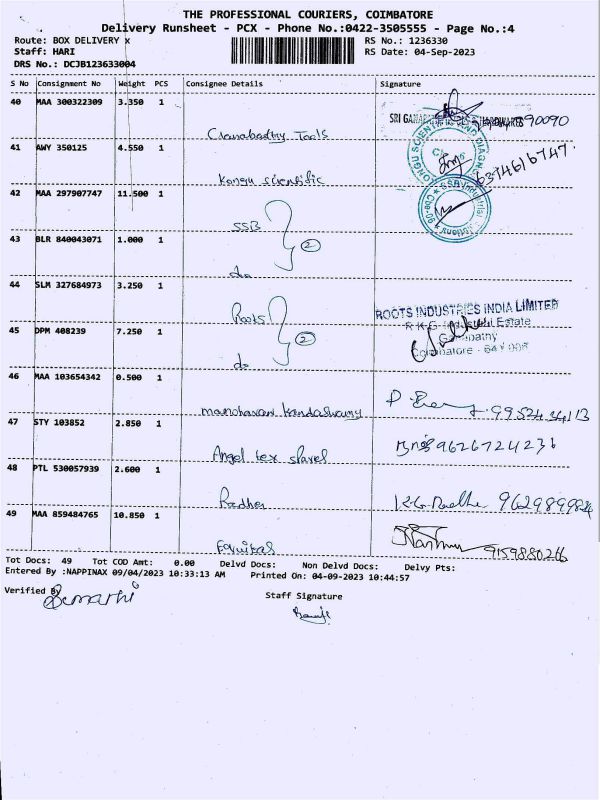 THE PROFESSIONAL COURIERS, COIMBATORE
Delivery Runsheet - PCX - Phone No.:0422-3505555 - Page No.:4
Route: BOX DELIVERY x
RS No.: 1236330
Staff: HARI
RS Date: 04-Sep-2023
DRS No.: DCJB123633004
S No Consignment No Weight PCS Consignee Details Signature
40 MAA 300322309 3.350 1
Ganabadhy Tools
41 AWY 350125 4.550 1
6374616747
Kongu Scientific
42 MAA 297907747 11.500 1
SSB
2
43 BLR 840043071 1.000 1
do
44 SLM 327684973 3.250 1
Roots
2
ROOTS INDUSTRIES INDIA LIMITED
R.K.G. Industrial Estate
Ganapathy
45 DPM 408239 7.250 1
do
46 MAA 103654342 0.500 1
47 STY 103852 2.850 1
9626724236
Angel tex
48 PTL 530057939 2.600 1
Radha
K.G. Radha 9629899824
49 MAA 859484765 10.850 1
9159880266
Tot Docs: 49 Tot COD Amt: 0.00 Delvd Docs: Non Delvd Docs: Delvy Pts:
Entered By :NAPPINAX 09/04/2023 10:33:13 AM Printed On: 04-09-2023 10:44:57
Verified By
Staff Signature